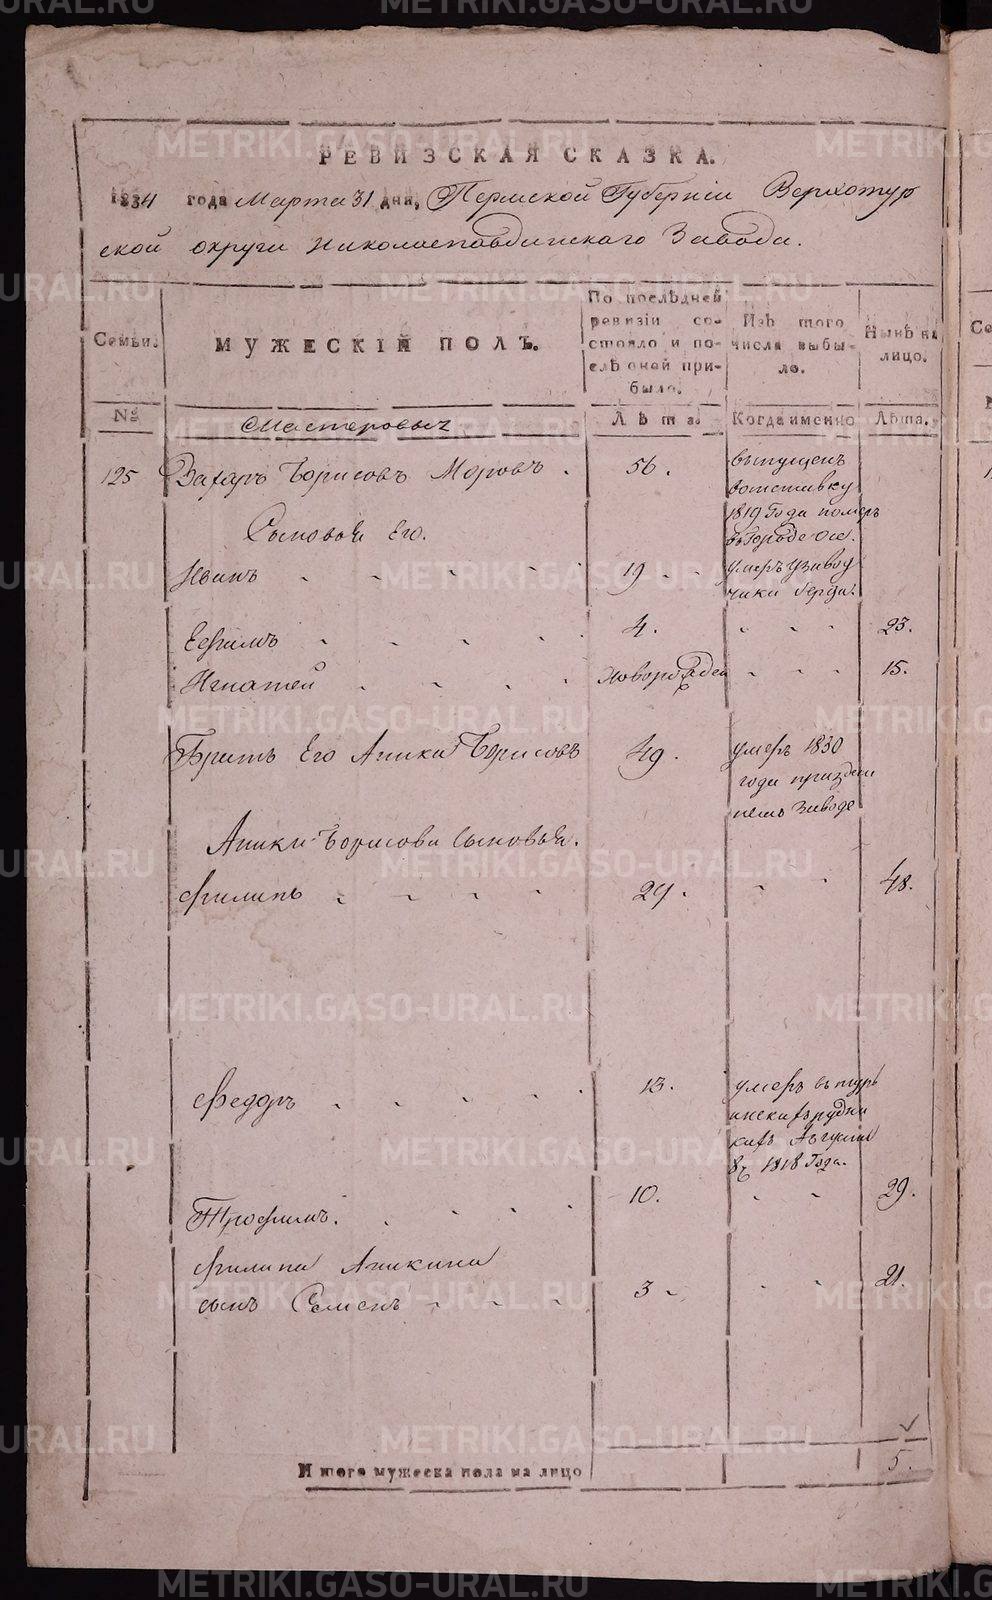 METRIKI.GASO-URAL.RU
РЕВИЗСКАЯ СКАЗКА.
1834 года Марта 31 дни, Пермской Губерніи Верхотур
ской округи Николаепавдинскаго Завода.
Семьи.
МУЖЕСКІЙ ПОЛЪ.
По послѣдней
ревизіи со-
стояло и по-
слѣ оной при-
было.
Изъ того
числа выбы-
ло.
Нынѣ на
лицо.
№
Мастеровыхъ
Лѣта.
Когда именно
Лѣта.
125 Захаръ Борисовъ Моровъ . 56.
выпущенъ
вотставку
1819 Года померъ
вгороде Осе.
Сыновья Его.
Иванъ 19
умеръ узавод
чика берда.
Ефимъ 4. 23.
Игнатей новорожден 15.
Братъ Его Аника Борисовъ 49.
умеръ 1830
года приздеш
немъ Заводе
Аники Борисова сыновья.
Филипъ 29. 48.
Федоръ 13.
умеръ въ турь
инскихъ рудни
кахъ Августа
8ч 1818 Года.
Трофимъ. 10. 29.
Филипа Аникина
сынъ Семенъ 3 21.
Итого мужеска пола на лицо 5.